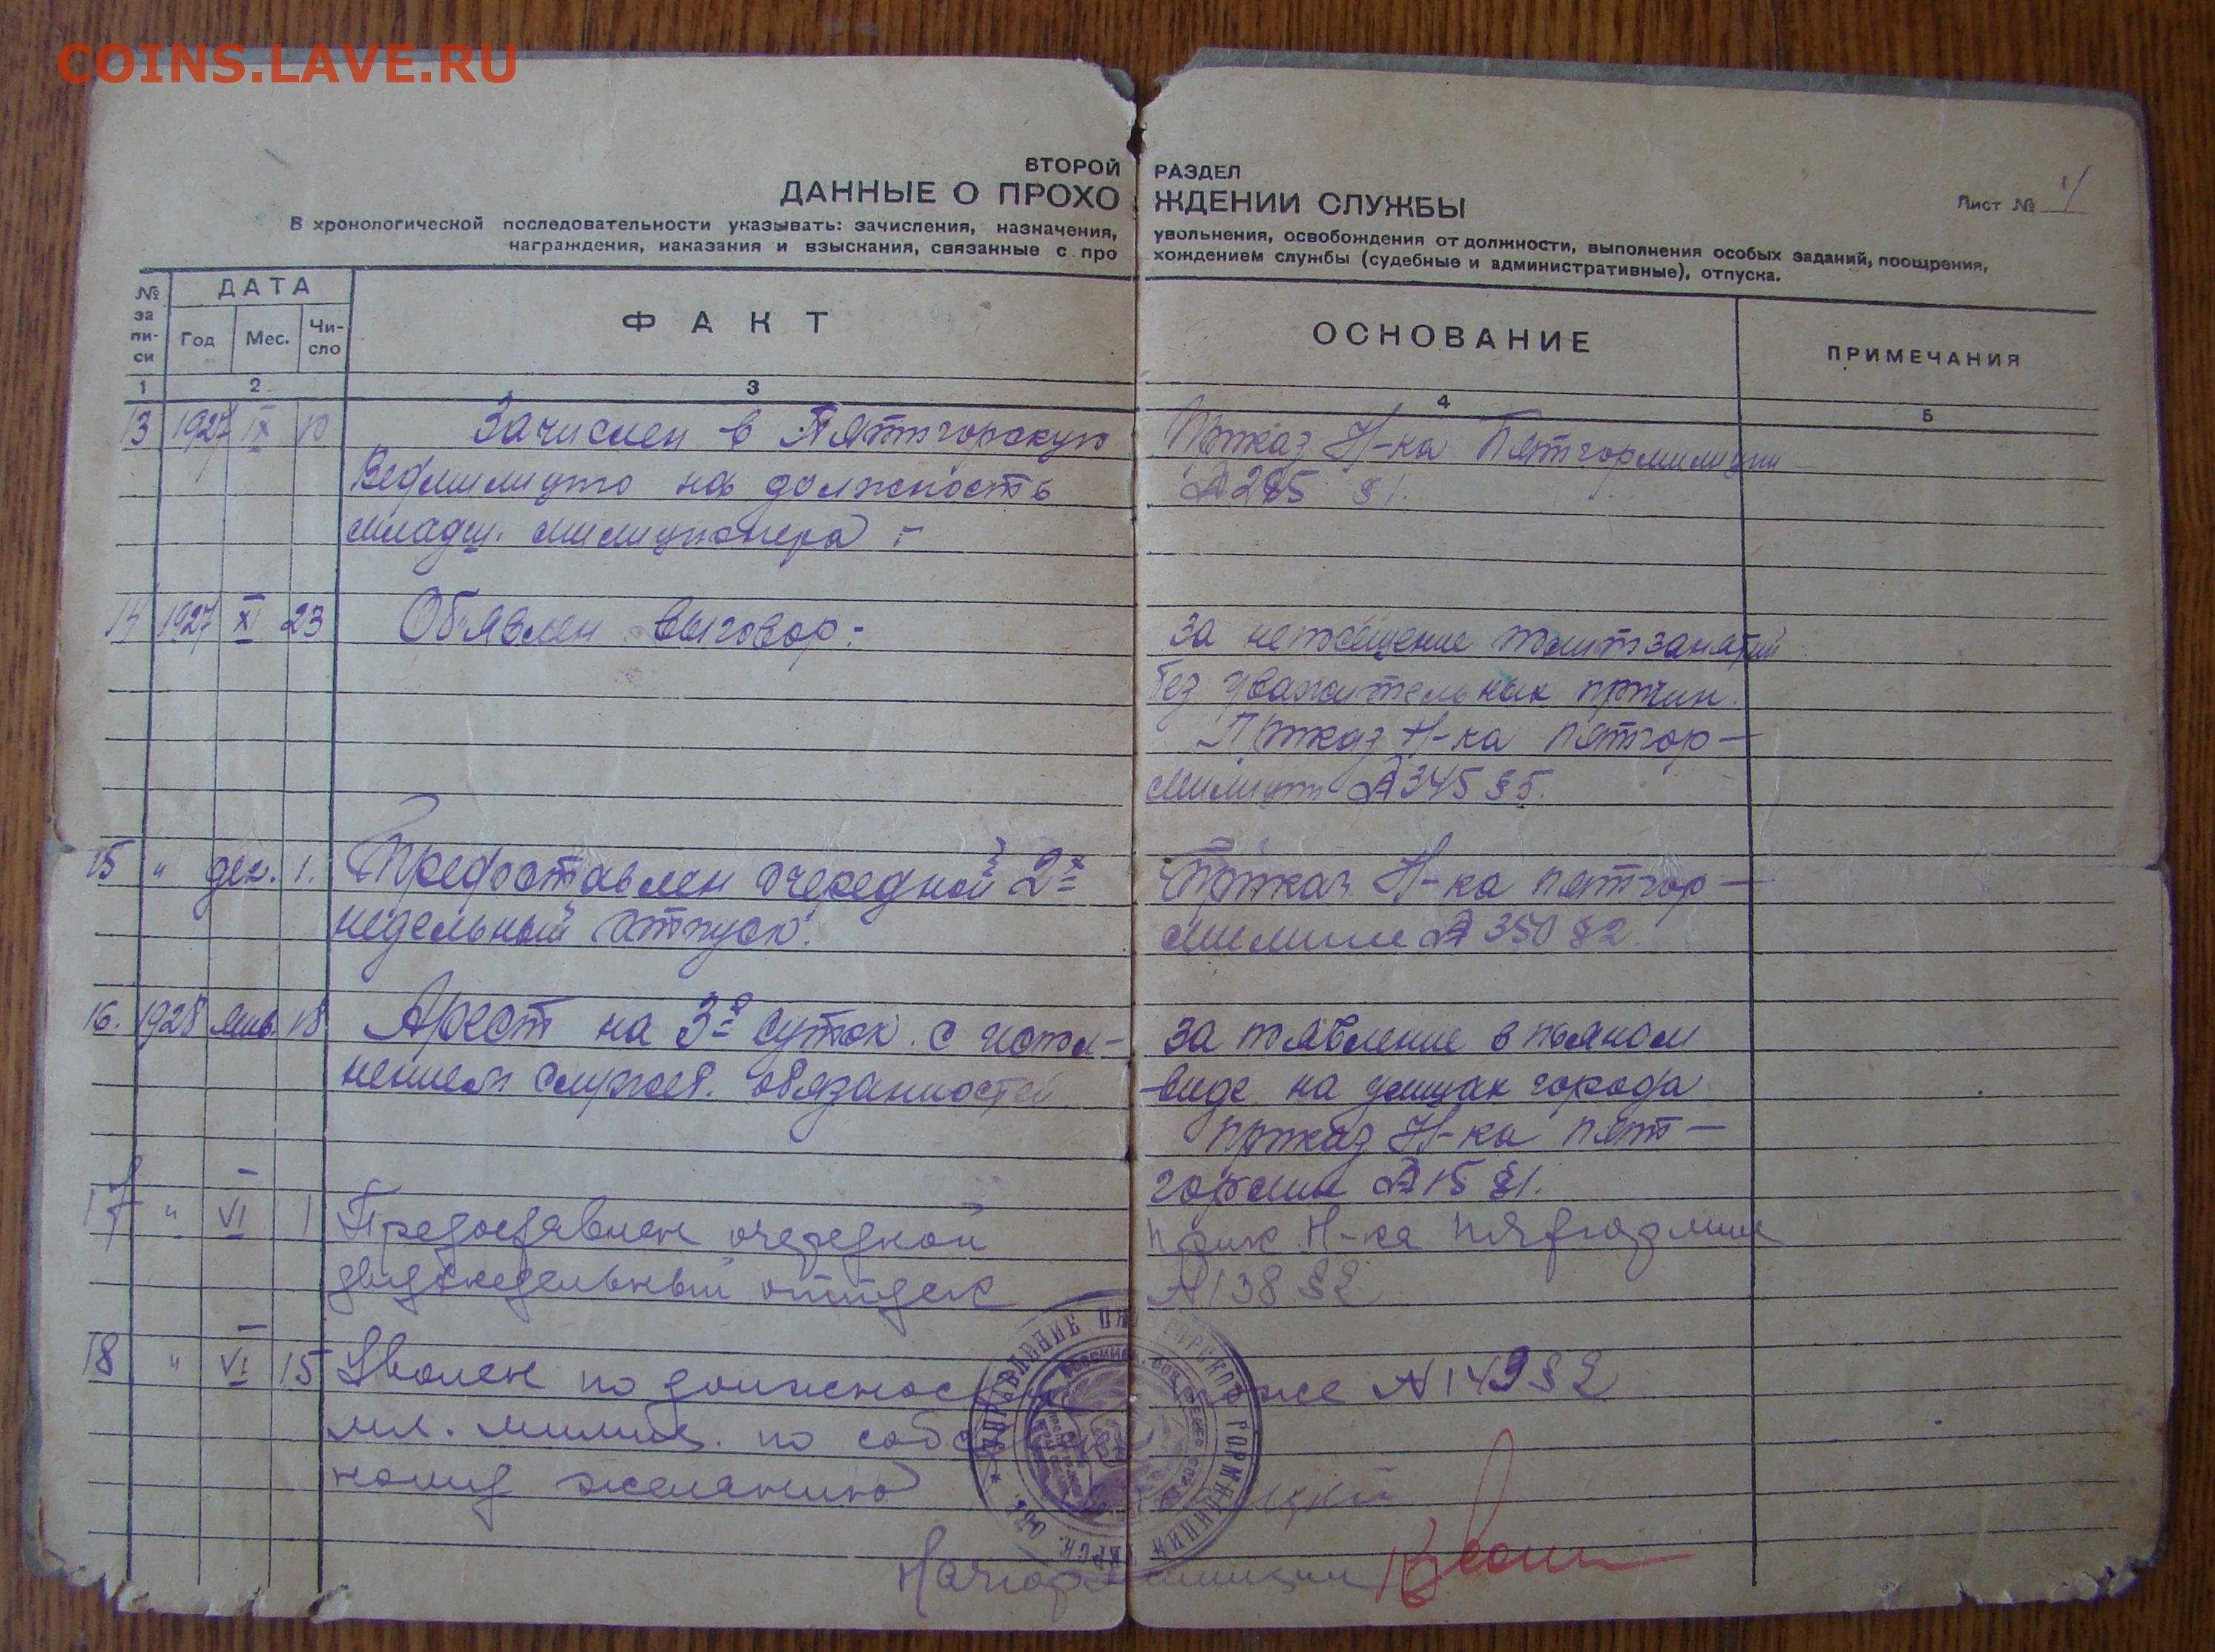 COINS.LAVE.RU
ВТОРОЙ РАЗДЕЛ
ДАННЫЕ О ПРОХОЖДЕНИИ СЛУЖБЫ
Лист №
В хронологической последовательности указывать: зачисления, назначения, увольнения, освобождения от должности, выполнения особых заданий, поощрения,
награждения, наказания и взыскания, связанные с прохождением службы (судебные и административные), отпуска.
№ за пи- си
ДАТА
Год Мес. Чи- сло
ФАКТ
ОСНОВАНИЕ
ПРИМЕЧАНИЯ
1 2 3 4 5
13 1927 IX 10 Зачислен в Пятигорскую Приказ Н-ка Пятгормилиции
Ведмилицию на должность № 285 § 1.
младш. милиционера
14 1927 XI 23 Об'явлен выговор за непосещение политзанятий
без уважительных причин.
Приказ Н-ка Пятгор-
милиции № 345 § 5.
15 " дек. 1. Предоставлен очередной 2х Приказ Н-ка пятгор-
недельный отпуск. милиции № 350 § 2.
16. 1928 янв. 18 Арест на 3е суток с испол- за появление в пьяном
нением служеб. обязанностей виде на улицах города
приказ Н-ка пят-
гормил № 15 § 1.
17 " VI 1 Предоставлен очередной Прик. Н-ка Пятгормил
двухнедельный отпуск № 138 § 2
18 " VI 15 Уволен по должнос тоже № 149 § 2
мл. милиц. по собс
ному желанию
Начгормилиции
УПРАВЛЕНИЕ ПЯТИГОРСКОЙ ГОРМИЛИЦИИ ТЕРСК.